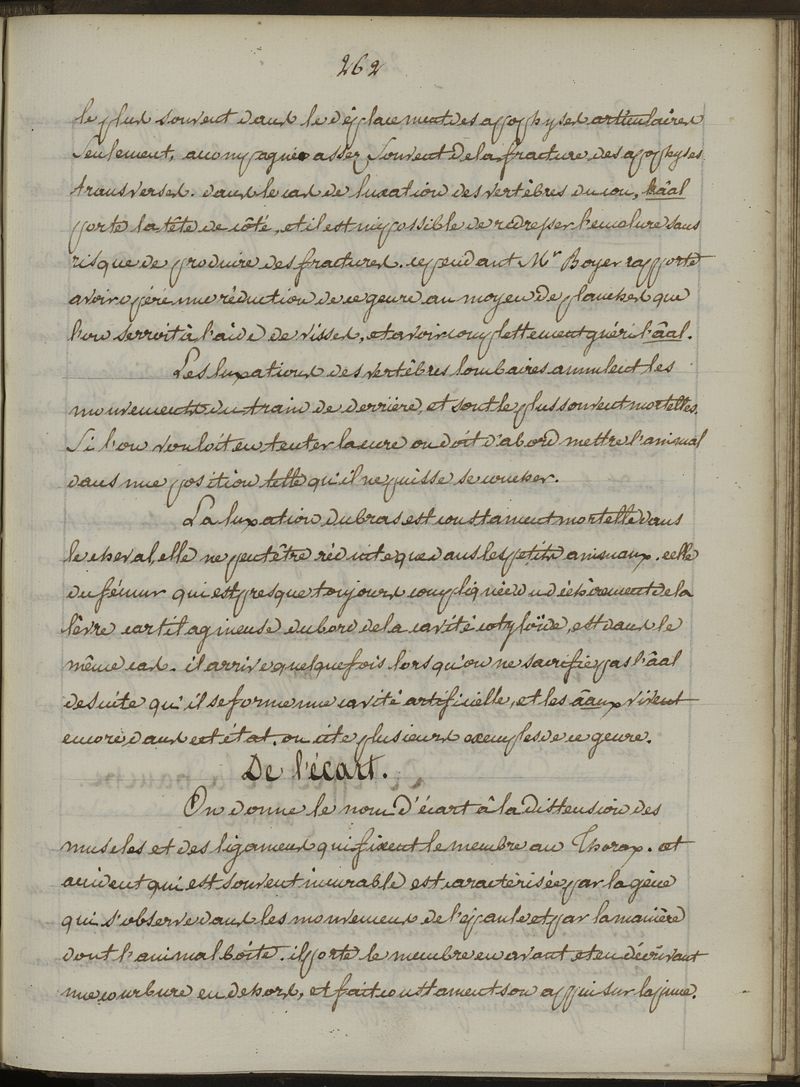 262
le plus souvent dans le déplacement des apophyses articulaires
Seulement, accompagnée assez Souvent de la fracture des apophyses
transverses. dans le cas de luxation des vertèbres du cou, l'aâl
porte la tête de côté, et il est impossible de redresser l'encolure sans
risque de produire des fractures. cependant Mr Boyer rapporte
avoir opéré une réduction de ce genre au moyen de planches que
l'on serroit à l'aide de visses, et avoir complettement guéri l'âal.
Les luxations des vertèbres lombaires annulent les
mouvements du train de derrière, et sont le plus souvent mortelles.
Si l'on vouloit en tenter la cure on doit d'abord mettre l'animal
dans une position telle qu'il ne puisse se coucher.
La luxation du bras est constament mortelle dans
le cheval, elle ne peut être réduite que dans les petits animaux. celle
du fémur qui est presque toujours compliquée du déchirement de la
lèvre cartilagineuse du bord de la cavité cotyloïde, est dans le
même cas. il arrive quelquefois lorsqu'on ne sacrifie pas l'âal
de suite qu'il se forme une cavité artificielle, et les âaux vivent
encore dans cet état. on cite plusieurs exemples de ce genre.
De l'écart.
On donne le nom d'écart à la distension des
muscles et des ligamens qui fixent le membre au Thorax. cet
accident qui est souvent incurable est caractérisée par la gêne
qui s'observe dans les mouvemens de l'épaule et par la manière
dont l'animal boite. il porte le membre en avant et en décrivant
une courbure en dehors, et fait constament son appui sur la pince.